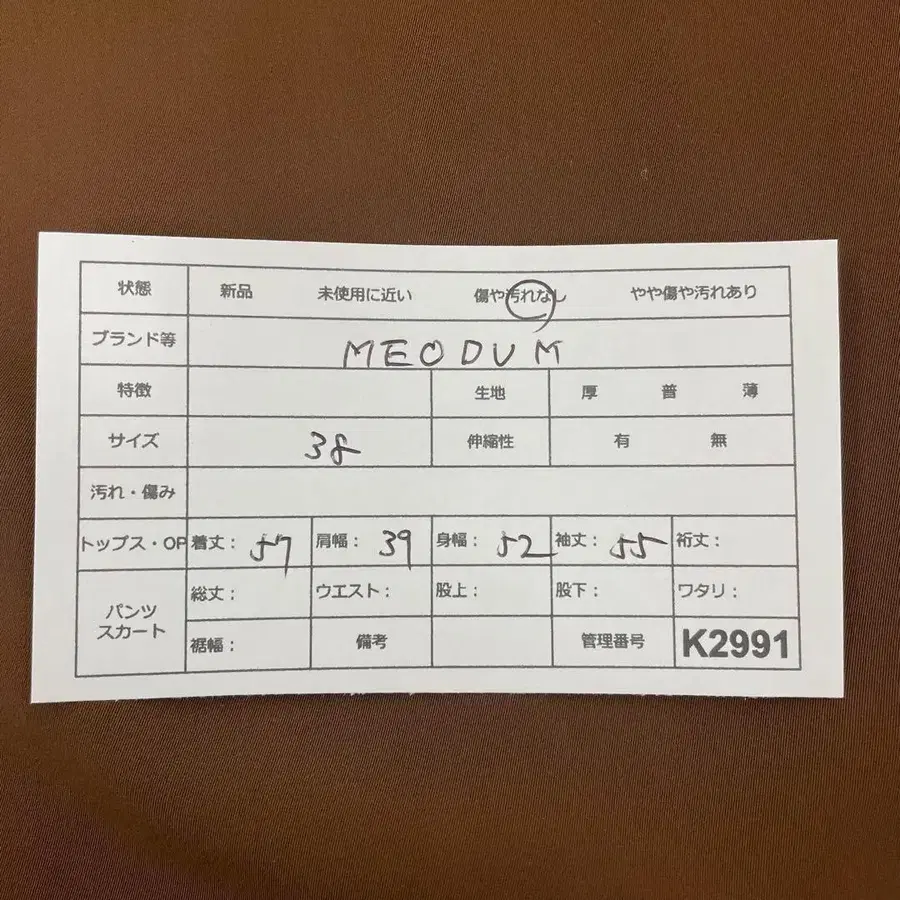 状態 新品 未使用に近い 傷や汚れなし やや傷や汚れあり
ブランド等 MEODUM
特徴 生地 厚 普 薄
サイズ 38 伸縮性 有 無
汚れ・傷み
トップス・OP 着丈： 57 肩幅： 39 身幅： 52 袖丈： 55 裄丈：
パンツ スカート 総丈： ウエスト： 股上： 股下： ワタリ：
裾幅： 備考 管理番号 K2991